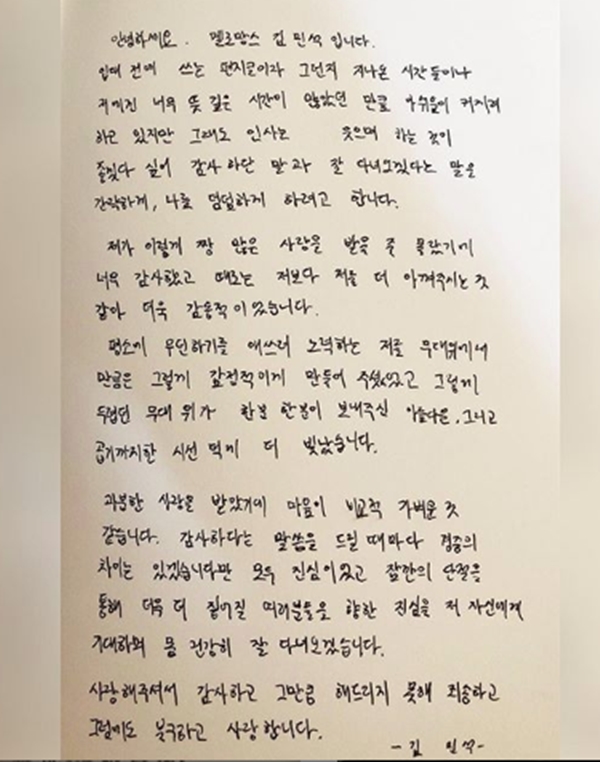 안녕하세요. 멜로망스 김민석 입니다.
입대 전에 쓰는 편지글이라 그런지 지나온 시간들이나
저에겐 너무 뜻 깊은 시간이 많았던 만큼 아쉬움이 커지려
하고 있지만 그래도 인사는 웃으며 하는 것이
좋겠다 싶어 감사하단 말과 잘 다녀오겠다는 말을
간략하게, 나름 덤덤하게 하려고 합니다.
제가 이렇게 짱 많은 사랑을 받을 줄 몰랐기에
너무 감사했고 때로는 저보다 저를 더 아껴주시는 것
같아 더욱 감동적이었습니다.
평소에 무던하기를 애쓰려 노력하는 저를 무대위에서
만큼은 그렇게 감정적이게 만들어 주셨었고 그렇게
두렵던 무대 위가 한분 한분이 보내주신 아름다운, 그리고
곱기까지한 시선 덕에 더 빛났습니다.
과분한 사랑을 받았기에 마음이 비교적 가벼운 것
같습니다. 감사하다는 말씀을 드릴 때마다 경중의
차이는 있겠습니다만 모두 진심이었고 잠깐의 단절을
통해 더욱 더 짙어질 여러분들을 향한 진심을 저 자신에게
기대하며 몸 건강히 잘 다녀오겠습니다.
사랑해주셔서 감사하고 그만큼 해드리지 못해 죄송하고
그럼에도 불구하고 사랑합니다.
- 김 민석 -